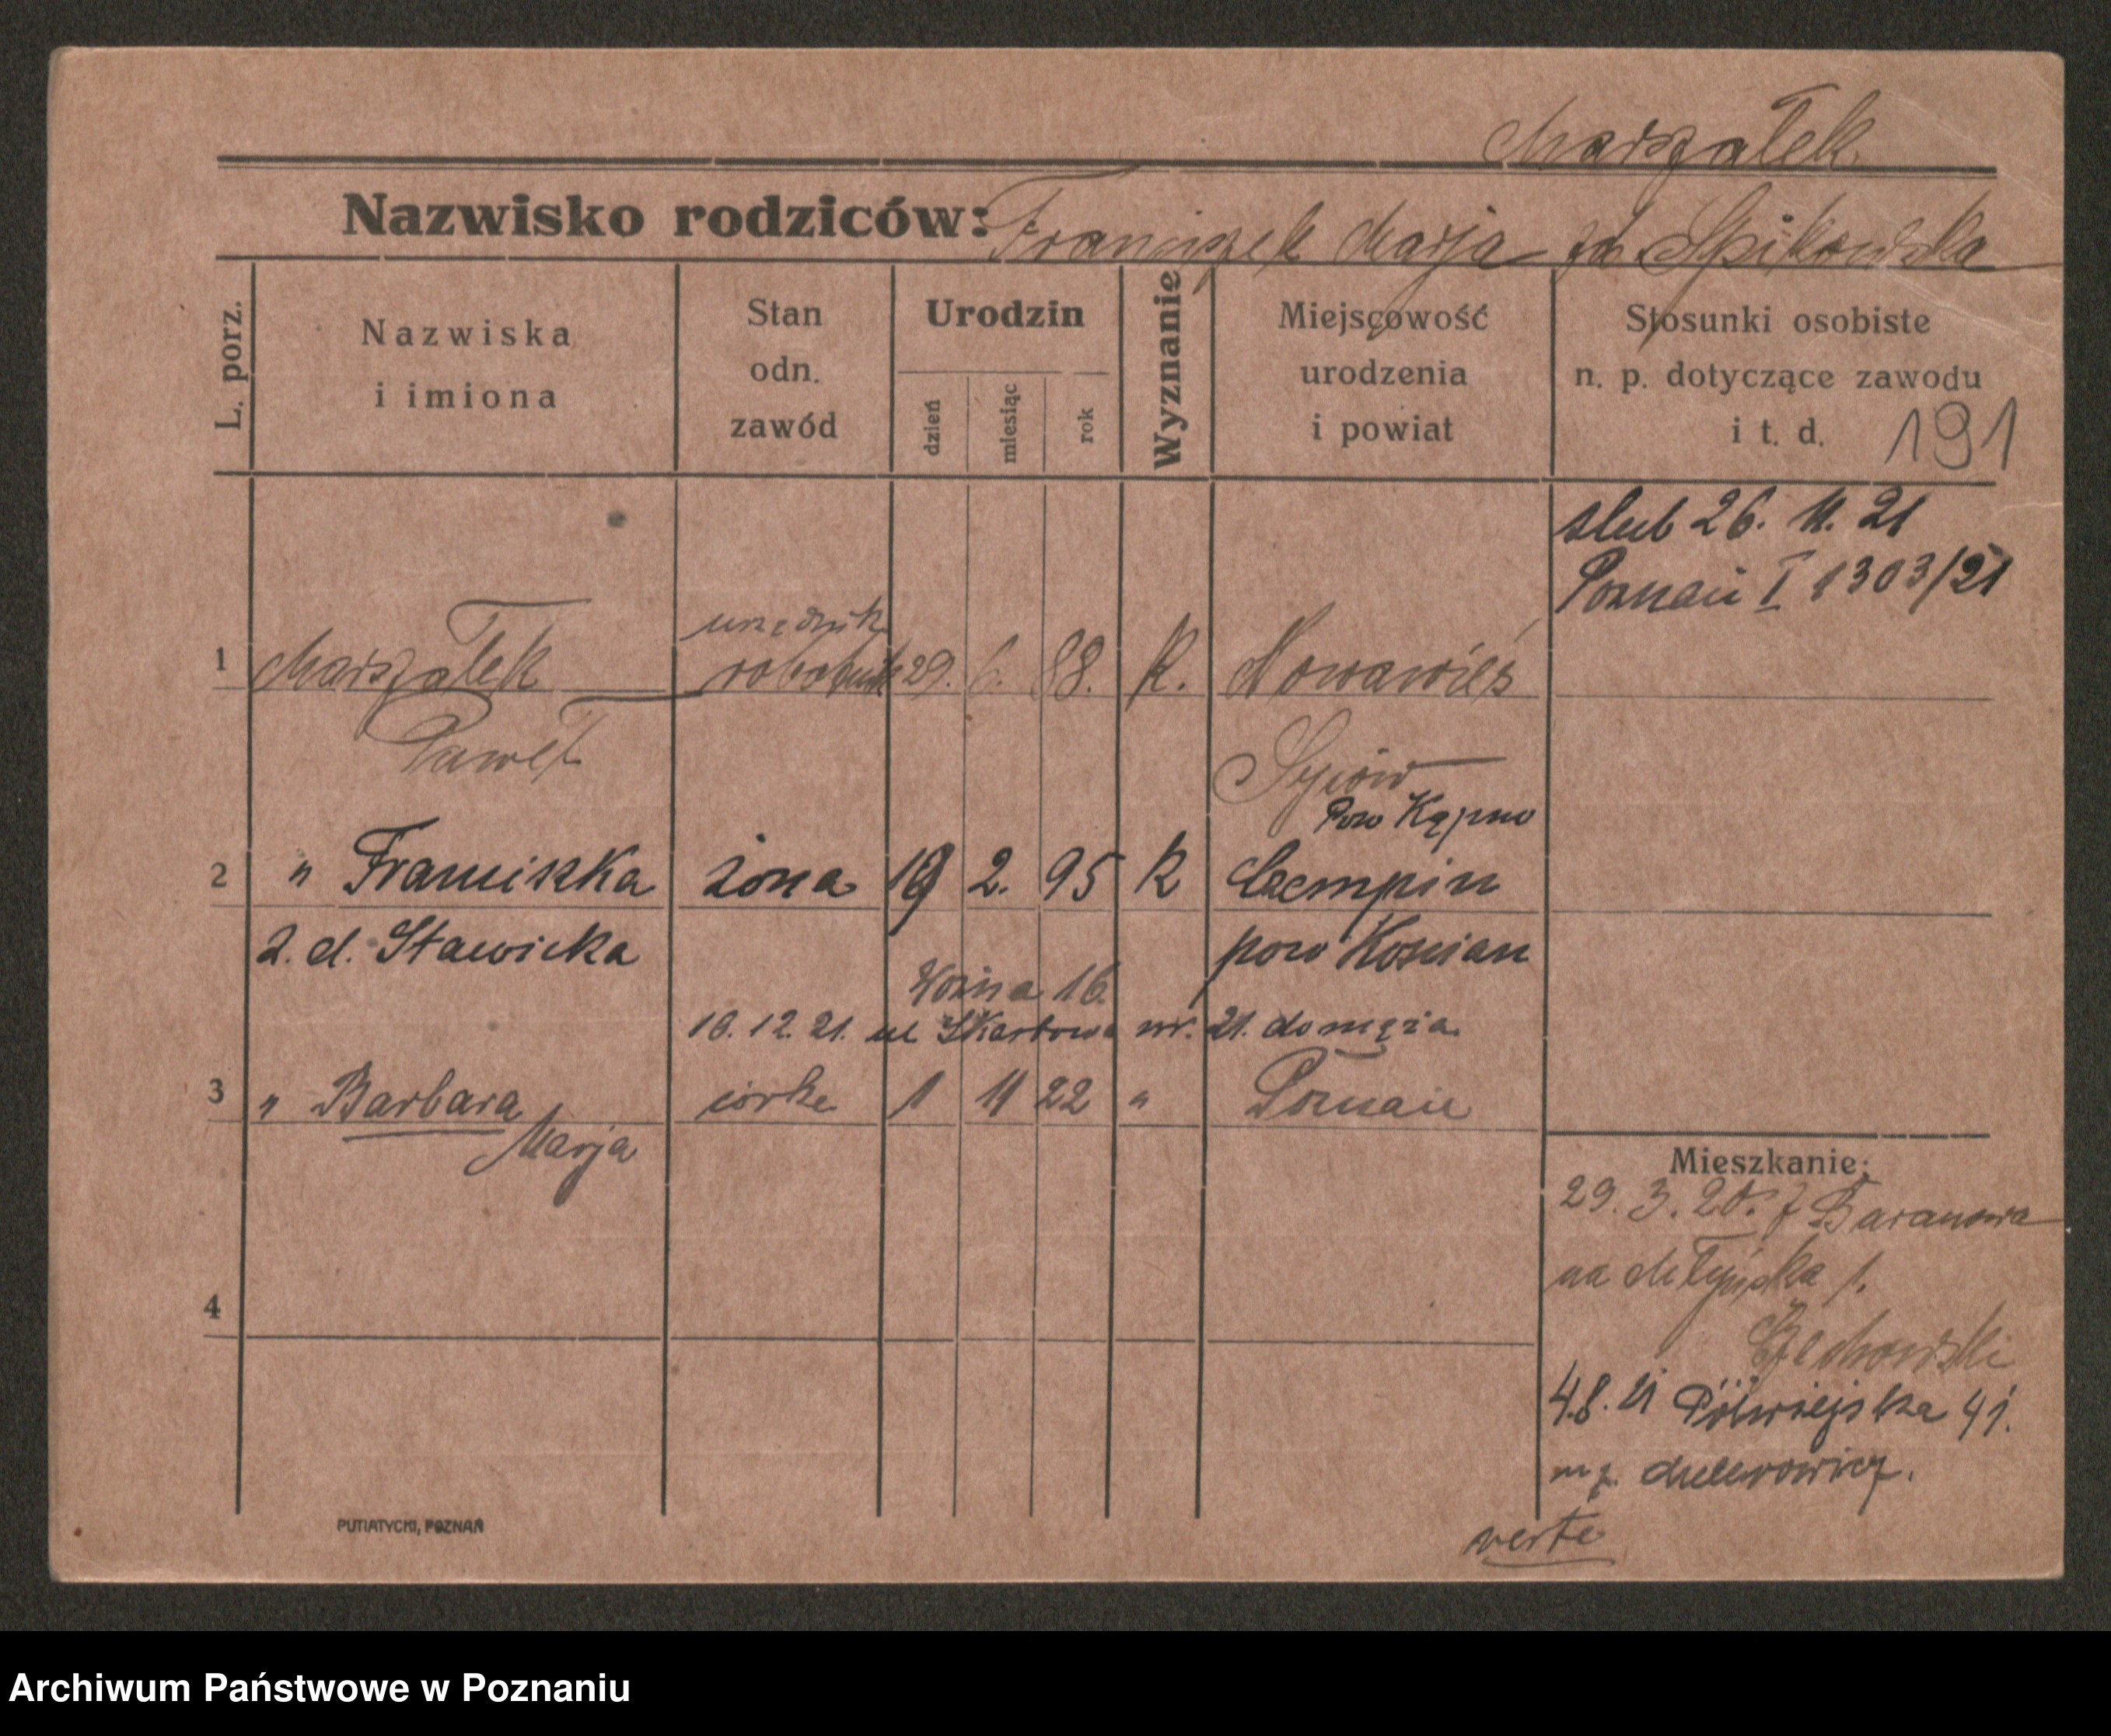 Marszałek
Nazwisko rodziców: Franciszek Marja zd Spikowska
L. porz.
Nazwiska
i imiona
Stan
odn.
zawód
Urodzin
dzień
miesiąc
rok
Wyznanie
Miejscowość
urodzenia
i powiat
Stosunki osobiste
n. p. dotyczące zawodu
i t. d. 191
slub 26. 11. 21
Poznań I 1303/21
urzędnik
1 Marszałek robotnik 29. 6. 88. K. Nowawieś
Paweł Syców
Pow Kępno
2 " Franciszka żona 19 2. 95 K Czempin
z. d. Stawicka pow Kościan
Woźna 16.
10. 12. 21. ul Skarbowa nr. 21. do męża.
3 " Barbara córka 1 11 22 " Poznań
Marja
Mieszkanie:
29. 3. 20. z Baranowa
na Młyńska 1.
Czechowski
4.8. 21 Półwiejska 41.
4
verte
PUTIATYCKI, POZNAŃ
Archiwum Państwowe w Poznaniu